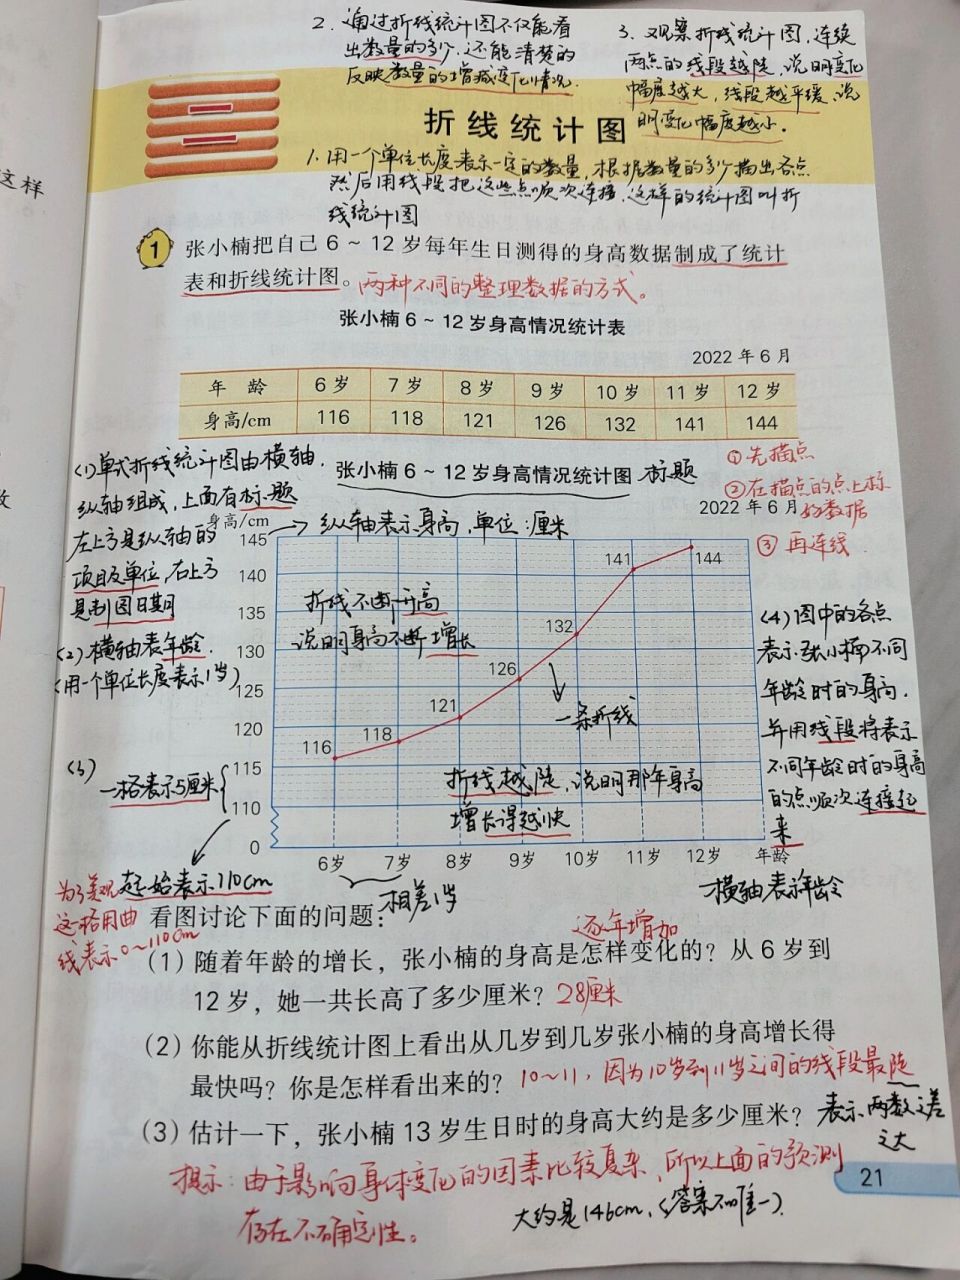 2. 通过折线统计图不仅能看
出数量的多少,还能清楚的
反映数量的增减变化情况.
3. 观察折线统计图,连续
两点的线段越陡,说明变化
幅度越大,线段越平缓,说
明变化幅度越小.
二
折线统计图
1.用一个单位长度表示一定的数量,根据数量的多少描出各点
然后用线段把这些点顺次连接,这样的统计图叫折
线统计图
这样
1
张小楠把自己 6 ~ 12 岁每年生日测得的身高数据制成了统计
表和折线统计图。两种不同的整理数据的方式。
张小楠 6 ~ 12 岁身高情况统计表
2022 年 6 月
年 龄 6 岁 7 岁 8 岁 9 岁 10 岁 11 岁 12 岁
身高/cm 116 118 121 126 132 141 144
(1)单式折线统计图由横轴.
纵轴组成,上面有标题
左上方是纵轴的
项目及单位,右上方
是制图日期
(2)横轴表年龄.
(用一个单位长度表示1岁)
(3)
一格表示5厘米
张小楠 6 ~ 12 岁身高情况统计图 标题
2022 年 6 月
①先描点
②在描点的点上标
好数据
③再连线
身高/cm
纵轴表示身高,单位:厘米
145
140
135
130
125
120
115
110
0
116
118
121
126
132
141
144
折线不断升高
说明身高不断增长
一条折线
折线越陡,说明那年身高
增长得越快
6岁 7岁 8岁 9岁 10岁 11岁 12岁 年龄
相差1岁
横轴表示年龄
(4)图中的各点
表示张小楠不同
年龄时的身高.
并用线段将表示
不同年龄时的身高
的点顺次连接起
来
起始表示110cm
为了美观
这一格用曲
线表示0~110cm
看图讨论下面的问题:
逐年增加
(1)随着年龄的增长,张小楠的身高是怎样变化的?从 6 岁到
12 岁,她一共长高了多少厘米?28厘米
(2)你能从折线统计图上看出从几岁到几岁张小楠的身高增长得
最快吗?你是怎样看出来的?10~11,因为10岁到11岁之间的线段最陡
表示两数之差
之大
(3)估计一下,张小楠 13 岁生日时的身高大约是多少厘米?
提示:由于影响身体变化的因素比较复杂,所以上面的预测
存在不确定性。
大约是146cm,(答案不唯一)
21